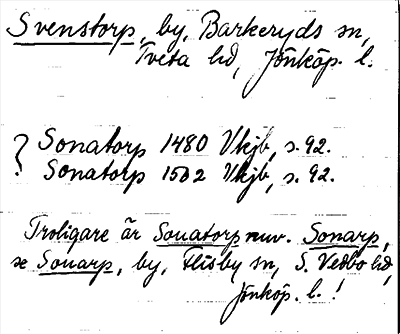 Svenstorp, by, Barkeryds sn,
Tveta hd, Jönköp. l.
? Sonatorp 1480 Vkjb, s. 92.
Sonatorp 1502 Vkjb, s. 92.
Troligare är Sonatorp nuv. Sonarp,
se Sonarp, by, Flisby sn, S. Vedbo hd,
Jönköp. l.!